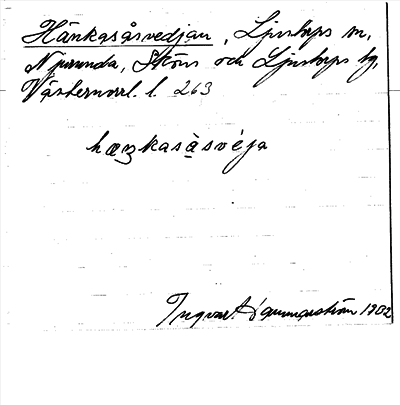 Hänkasåsvedjan, Ljustorps sn,
Njurunda, Sköns och Ljustorps tg,
Västernorrl. l. 263
hæŋkasåsvéja
Ingvar Hammarström 1932